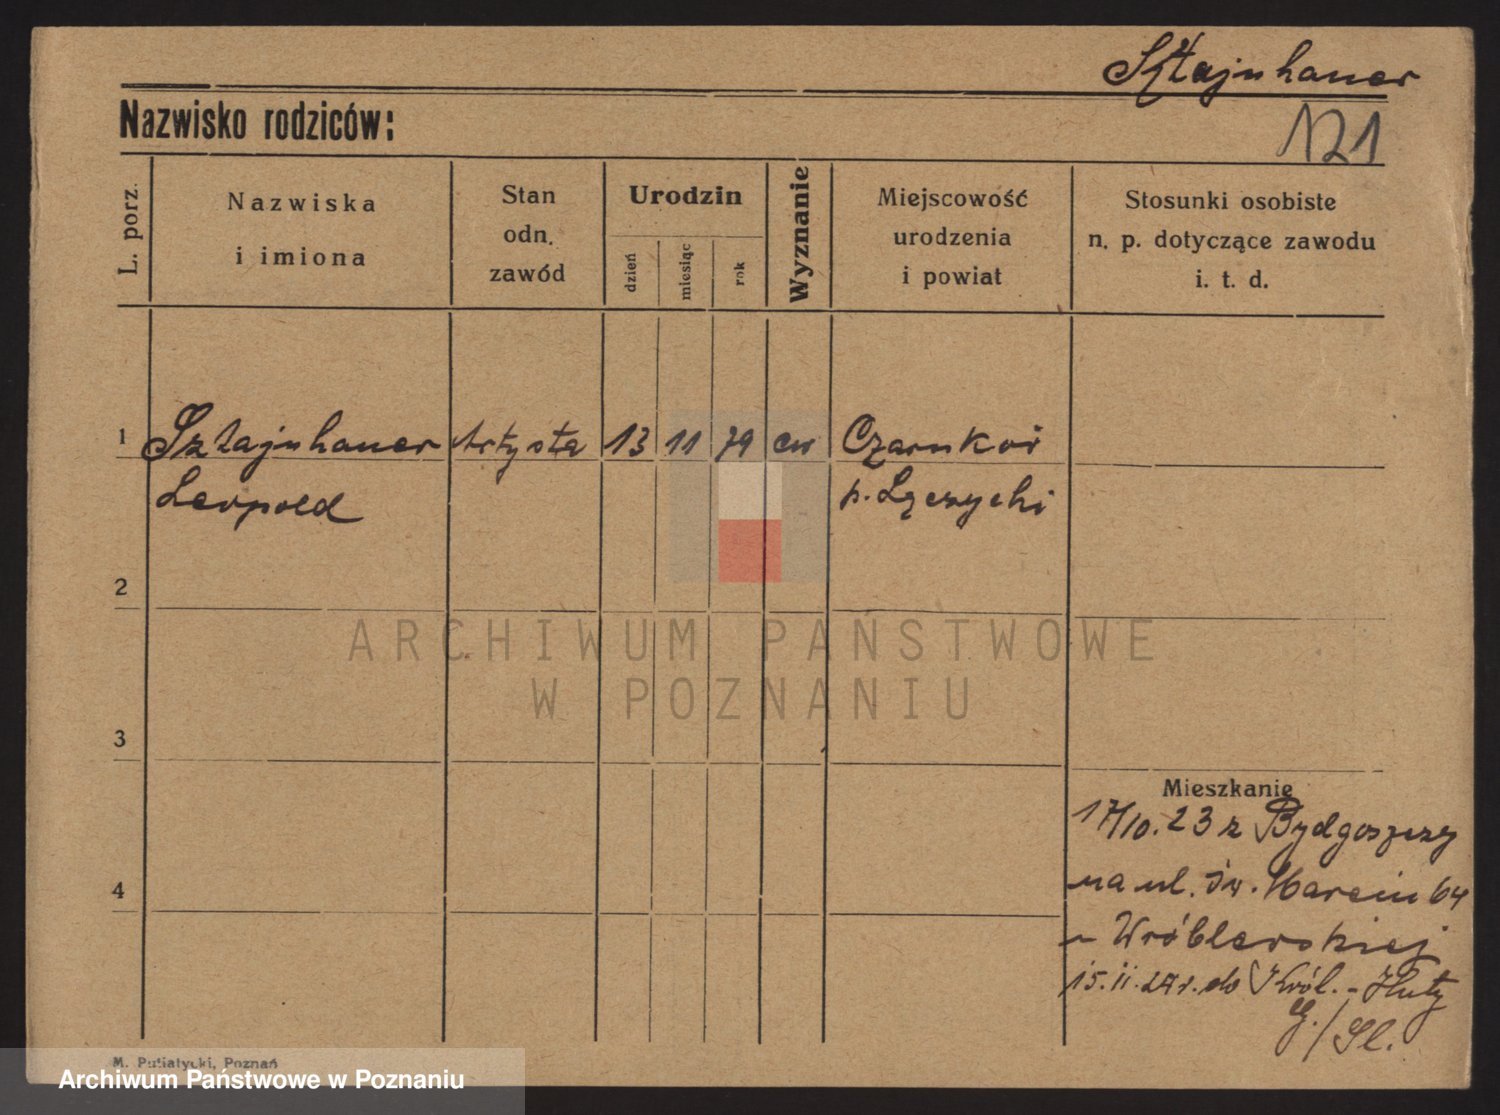 Sztajnhauer
Nazwisko rodziców:
121
L. porz.
Nazwiska
i imiona
Stan
odn.
zawód
Urodzin
dzień
miesiąc
rok
Wyznanie
Miejscowość
urodzenia
i powiat
Stosunki osobiste
n. p. dotyczące zawodu
i. t. d.
1 Sztajnhauer Artysta 13 11 79 ew Czarnków
Leopold p. Łęczycki
2
ARCHIWUM PAŃSTWOWE
W POZNANIU
3
Mieszkanie
17/10. 23 z Bydgoszczy
4
na ul. Św. Marcin 64
Wróblewskiej
15. II. 24 r. do Król. - Huty
G./Śl.
M. Putiatycki, Poznań
Archiwum Państwowe w Poznaniu